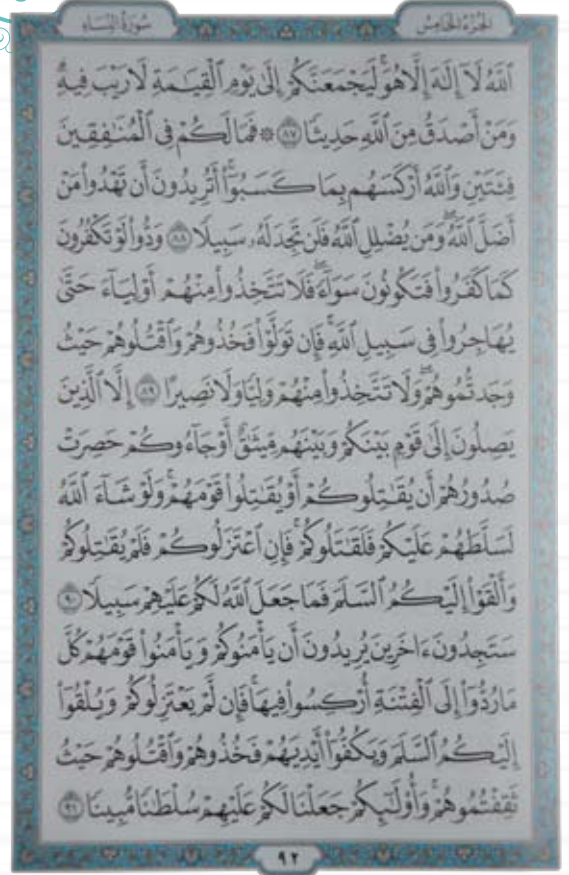 سورة النساء
الجزء الخامس
ٱللَّهُ لَآ إِلَٰهَ إِلَّا هُوَۚ لَيَجۡمَعَنَّكُمۡ إِلَىٰ يَوۡمِ ٱلۡقِيَٰمَةِ لَا رَيۡبَ فِيهِۗ
وَمَنۡ أَصۡدَقُ مِنَ ٱللَّهِ حَدِيثٗا ٨٧ ۞ فَمَا لَكُمۡ فِي ٱلۡمُنَٰفِقِينَ
فِئَتَيۡنِ وَٱللَّهُ أَرۡكَسَهُم بِمَا كَسَبُوٓاْۚ أَتُرِيدُونَ أَن تَهۡدُواْ مَنۡ
أَضَلَّ ٱللَّهُۖ وَمَن يُضۡلِلِ ٱللَّهُ فَلَن تَجِدَ لَهُۥ سَبِيلٗا ٨٨ وَدُّواْ لَوۡ تَكۡفُرُونَ
كَمَا كَفَرُواْ فَتَكُونُونَ سَوَآءٗۖ فَلَا تَتَّخِذُواْ مِنۡهُمۡ أَوۡلِيَآءَ حَتَّىٰ
يُهَاجِرُواْ فِي سَبِيلِ ٱللَّهِۚ فَإِن تَوَلَّوۡاْ فَخُذُوهُمۡ وَٱقۡتُلُوهُمۡ حَيۡثُ
وَجَدتُّمُوهُمۡۖ وَلَا تَتَّخِذُواْ مِنۡهُمۡ وَلِيّٗا وَلَا نَصِيرًا ٨٩ إِلَّا ٱلَّذِينَ
يَصِلُونَ إِلَىٰ قَوۡمِۭ بَيۡنَكُمۡ وَبَيۡنَهُم مِّيثَٰقٌ أَوۡ جَآءُوكُمۡ حَصِرَتۡ
صُدُورُهُمۡ أَن يُقَٰتِلُوكُمۡ أَوۡ يُقَٰتِلُواْ قَوۡمَهُمۡۚ وَلَوۡ شَآءَ ٱللَّهُ
لَسَلَّطَهُمۡ عَلَيۡكُمۡ فَلَقَٰتَلُوكُمۡۚ فَإِنِ ٱعۡتَزَلُوكُمۡ فَلَمۡ يُقَٰتِلُوكُمۡ
وَأَلۡقَوۡاْ إِلَيۡكُمُ ٱلسَّلَمَ فَمَا جَعَلَ ٱللَّهُ لَكُمۡ عَلَيۡهِمۡ سَبِيلٗا ٩٠
سَتَجِدُونَ ءَاخَرِينَ يُرِيدُونَ أَن يَأۡمَنُوكُمۡ وَيَأۡمَنُواْ قَوۡمَهُمۡ كُلَّ
مَا رُدُّوٓاْ إِلَى ٱلۡفِتۡنَةِ أُرۡكِسُواْ فِيهَاۚ فَإِن لَّمۡ يَعۡتَزِلُوكُمۡ وَيُلۡقُوٓاْ
إِلَيۡكُمُ ٱلسَّلَمَ وَيَكُفُّوٓاْ أَيۡدِيَهُمۡ فَخُذُوهُمۡ وَٱقۡتُلُوهُمۡ حَيۡثُ
ثَقِفۡتُمُوهُمۡۚ وَأُوْلَٰٓئِكُمۡ جَعَلۡنَا لَكُمۡ عَلَيۡهِمۡ سُلۡطَٰنٗا مُّبِينٗا ٩١
٩٢